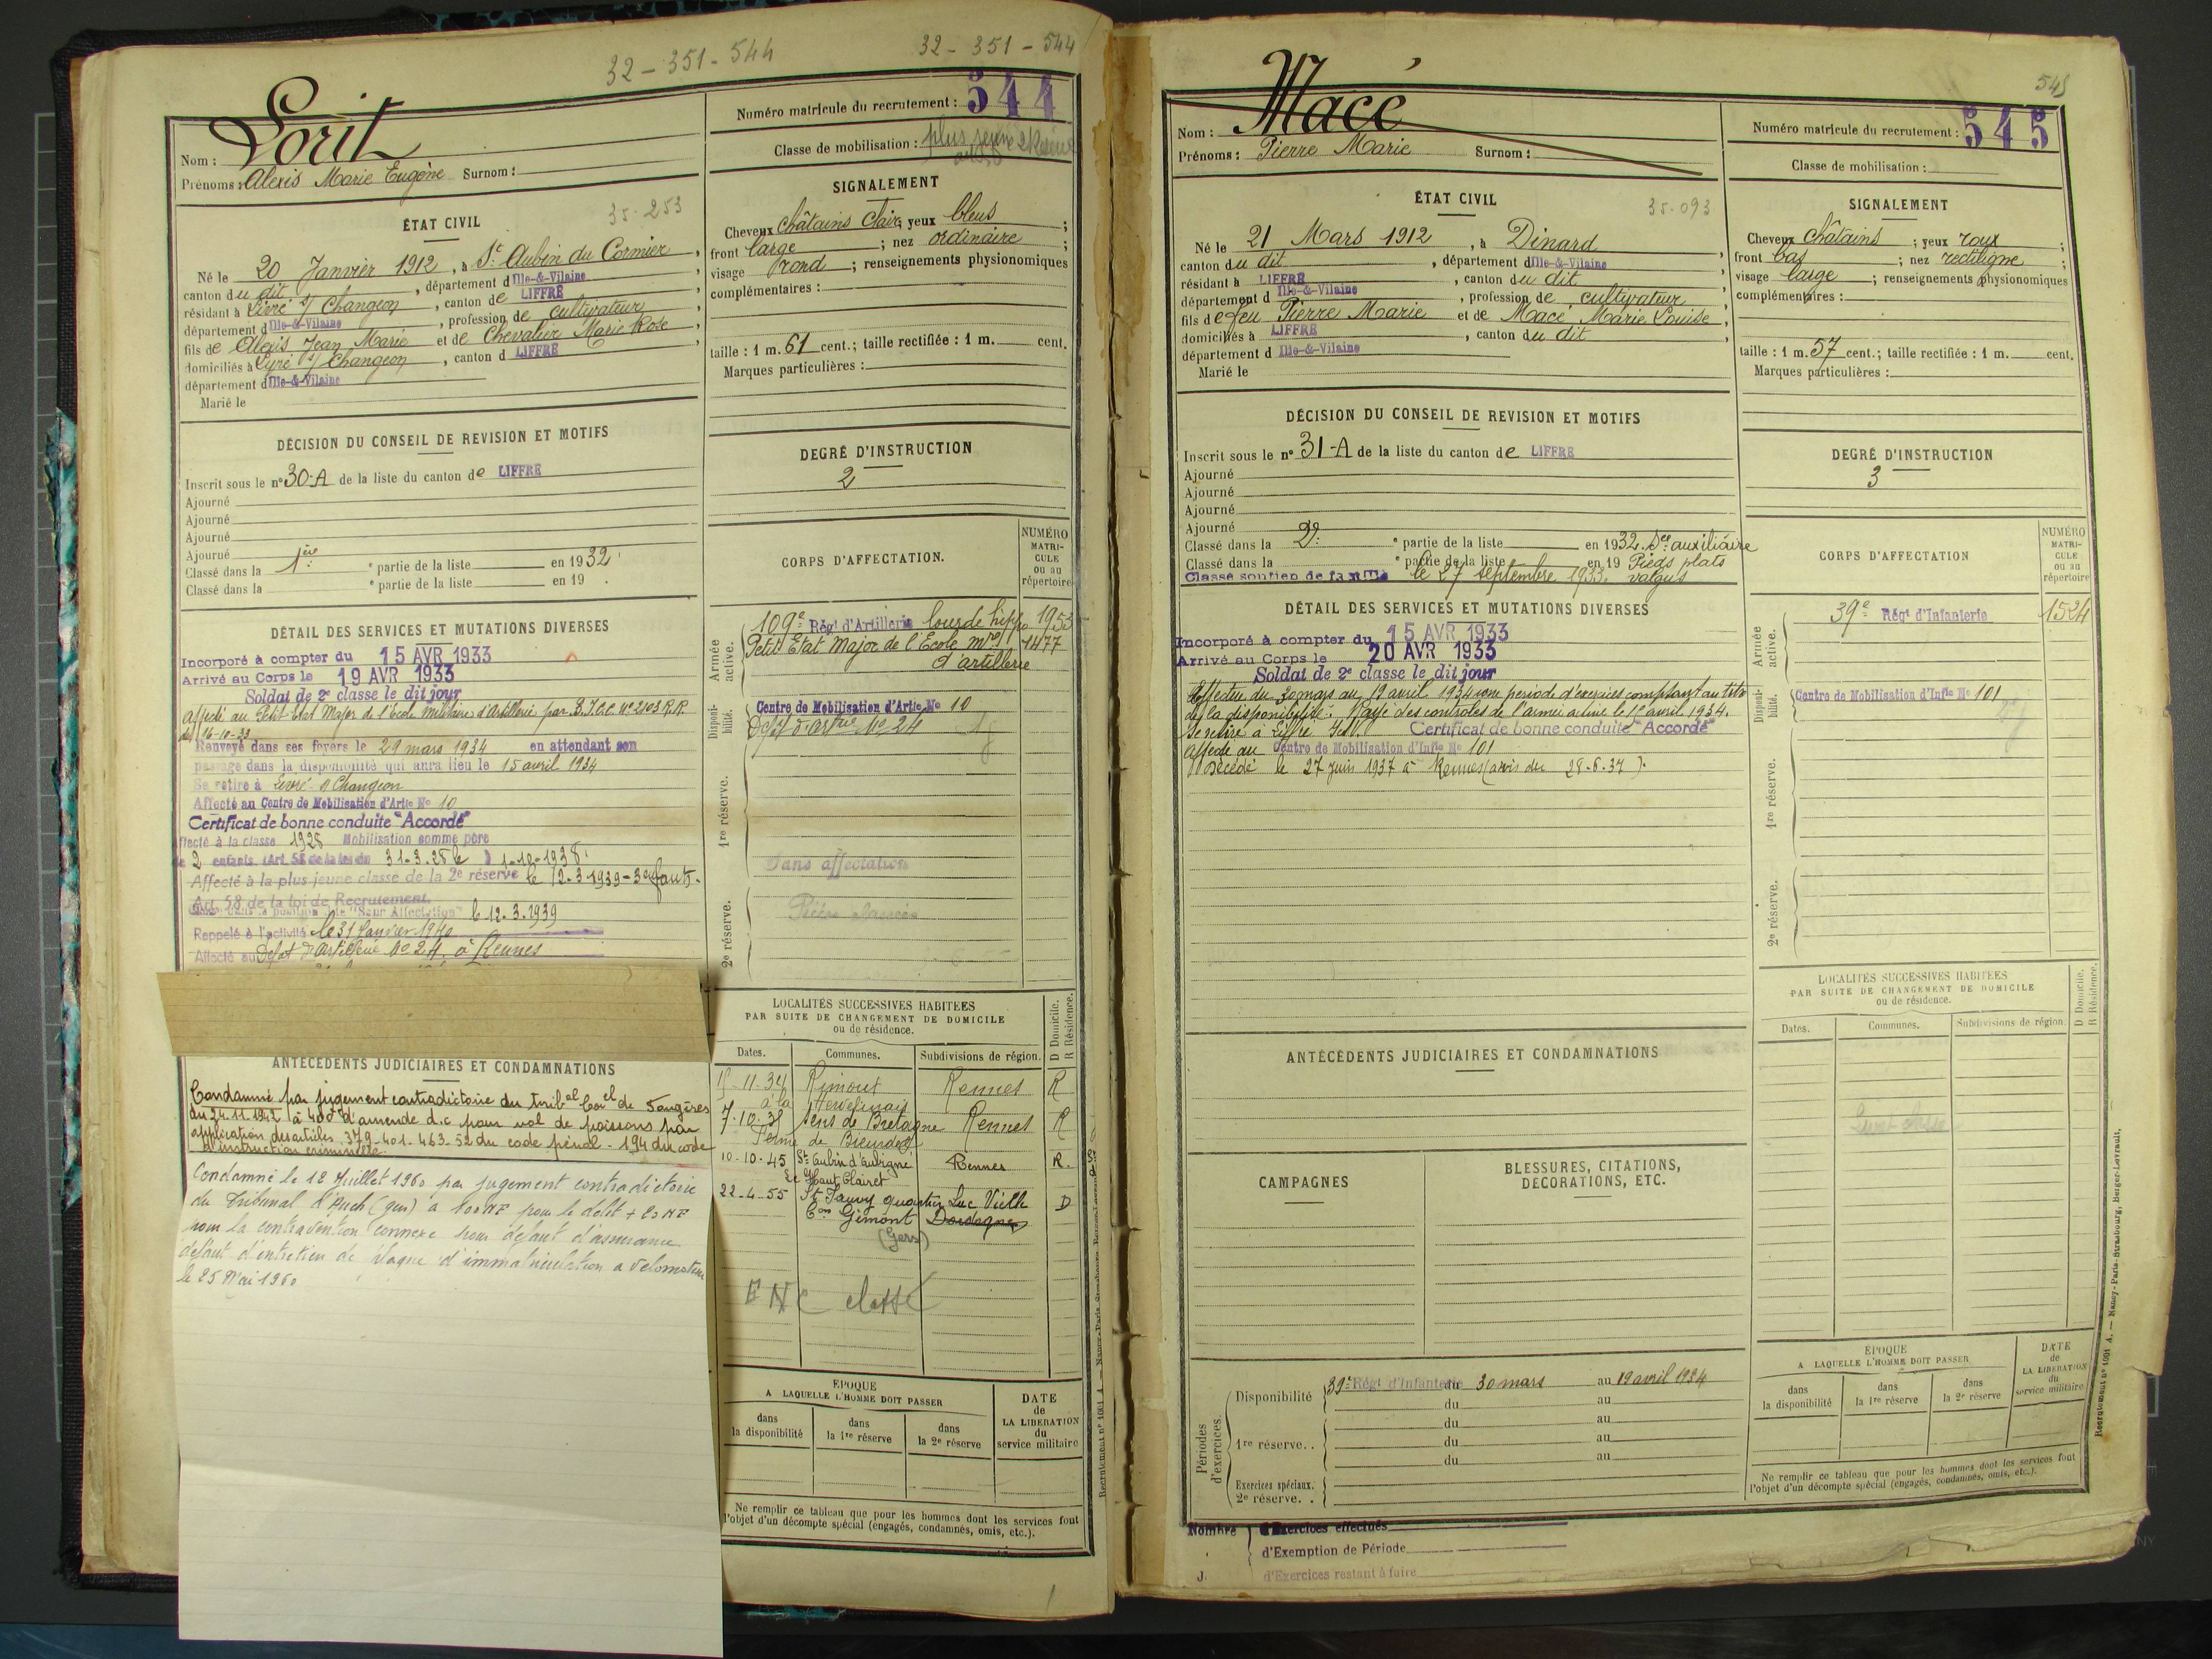 32-351-544
32-351-544
Nom : Lorit
Prénoms : Alexis Marie Eugène Surnom :
Numéro matricule du recrutement : 544
Classe de mobilisation : plus jeune 2e Réserve
ÉTAT CIVIL
35-253
Né le 20 Janvier 1912, à St Aubin du Cormier,
canton du dit, département d Ille-&-Vilaine
résidant à Livré s/ Changeon, canton de LIFFRÉ
département d Ille-&-Vilaine, profession de cultivateur
fils de Alexis Jean Marie et de Chevalier Marie Rose,
domiciliés à Livré s/ Changeon, canton d LIFFRÉ
département d Ille-&-Vilaine
Marié le
SIGNALEMENT
Cheveux châtains clairs yeux bleus ;
front large ; nez ordinaire ;
visage rond ; renseignements physionomiques
complémentaires :
taille : 1 m. 61 cent.; taille rectifiée : 1 m. cent.
Marques particulières :
DÉCISION DU CONSEIL DE REVISION ET MOTIFS
Inscrit sous le n° 30-A de la liste du canton de LIFFRÉ
Ajourné
Ajourné
Ajourné
Ajourné
Classé dans la 1ère e partie de la liste en 1932
Classé dans la e partie de la liste en 19 .
DEGRÉ D'INSTRUCTION
2
DÉTAIL DES SERVICES ET MUTATIONS DIVERSES
Incorporé à compter du 15 AVR 1933
Arrivé au Corps le 19 AVR 1933
Soldat de 2e classe le dit jour
Affecté au Petit Etat Major de l'Ecole militaire d'Artillerie par n° 2103 R.R.
du 16-10-33
Renvoyé dans ses foyers le 29 mars 1934 en attendant son
passage dans la disponibilité qui aura lieu le 15 avril 1934
Se retire à Livré s/ Changeon
Affecté au Centre de Mobilisation d'Artie No 10
Certificat de bonne conduite "Accordé"
Affecté à la classe 1928 Mobilisation comme père
de 2 enfants (Art. 58 de la loi du 31-3-28 le ) 1-10-1938.
Affecté à la plus jeune classe de la 2e réserve le 12-3-1939 - 3 enfants.
Art. 58 de la loi de Recrutement.
Classé dans la position dite "Sans Affectation" le 12.3.1939
Rappelé à l'activité le 31 Janvier 1940
Affecté au Dépôt d'Artillerie No 24, à Rennes
CORPS D'AFFECTATION.
NUMÉRO
MATRI-
CULE
ou au
répertoire
Armée active.
109e Régt d'Artillerie lourde hippo 1953
Petit Etat Major de l'Ecole mre 1477
d'artillerie
Disponibilité.
Centre de Mobilisation d'Artie No 10
Dépôt d'Artie No 24
1re réserve.
Sans affectation
2e réserve.
ANTÉCÉDENTS JUDICIAIRES ET CONDAMNATIONS
Condamné par jugement contradictoire du tribal Corel de Fougères
du 24.11.1942 à 400 f d'amende d.c pour vol de poissons par
application des articles 379-401-463-52 du code pénal - 194 du code
d'instruction criminelle
Condamné le 12 Juillet 1960 par jugement contradictoire
du Tribunal d'Auch (Gers) à 100 NF pour le délit + 20 NF
pour la contravention connexe pour défaut d'assurance
défaut d'entretien de plaque d'immatriculation a velomoteur
le 25 Mai 1960
LOCALITÉS SUCCESSIVES HABITÉES
PAR SUITE DE CHANGEMENT DE DOMICILE
ou de résidence.
Dates. Communes. Subdivisions de région. D Domicile. R Résidence.
11-34 Rimou Rennes R
à la
7-10-38 Sens de Bretagne Rennes R
Ferme de
10-10-45 St Aubin d'Aubigné Rennes R.
Le Haut Clairet
22-4-55 St Sauvy quartier Luc Vielle D
Con Gimont Dordogne
(Gers)
classé
ÉPOQUE
A LAQUELLE L'HOMME DOIT PASSER
dans la disponibilité
dans la 1re réserve
dans la 2e réserve
DATE
de
LA LIBÉRATION
du
service militaire
Ne remplir ce tableau que pour les hommes dont les services font
l'objet d'un décompte spécial (engagés, condamnés, omis, etc.).
545
Nom : Macé
Prénoms : Pierre Marie Surnom :
Numéro matricule du recrutement : 545
Classe de mobilisation :
ÉTAT CIVIL
35-093
Né le 21 Mars 1912, à Dinard
canton du dit, département d Ille-&-Vilaine
résidant à LIFFRÉ, canton du dit
département d Ille-&-Vilaine, profession de cultivateur
fils de feu Pierre Marie et de Macé Marie Louise,
domiciliés à LIFFRÉ, canton du dit
département d Ille-&-Vilaine
Marié le
SIGNALEMENT
Cheveux châtains ; yeux roux ;
front bas ; nez rectiligne ;
visage large ; renseignements physionomiques
complémentaires :
taille : 1 m. 57 cent.; taille rectifiée : 1 m. cent.
Marques particulières :
DÉCISION DU CONSEIL DE REVISION ET MOTIFS
Inscrit sous le n° 31-A de la liste du canton de LIFFRÉ
Ajourné
Ajourné
Ajourné
Ajourné
Classé dans la 2e e partie de la liste en 1932. Sce auxiliaire
Classé dans la e partie de la liste en 19 Pieds plats
Classé soutien de famille le 27 septembre 1933. valgus
DEGRÉ D'INSTRUCTION
3
DÉTAIL DES SERVICES ET MUTATIONS DIVERSES
Incorporé à compter du 15 AVR 1933
Arrivé au Corps le 20 AVR 1933
Soldat de 2e classe le dit jour
Effectue du 30 mars au 19 avril 1934 une période d'exercices comptant au titre
de la disponibilité. Rayé des contrôles de l'armée active le 1er avril 1934.
Se retire à Liffré Certificat de bonne conduite "Accordé"
Affecté au Centre de Mobilisation d'Infie No 101
Décédé le 27 juin 1937 à Rennes (avis du 28.6.37).
CORPS D'AFFECTATION
NUMÉRO
MATRI-
CULE
ou au
répertoire
Armée active.
39e Régt d'Infanterie 1524
Disponibilité.
Centre de Mobilisation d'Infie No 101
1re réserve.
2e réserve.
LOCALITÉS SUCCESSIVES HABITÉES
PAR SUITE DE CHANGEMENT DE DOMICILE
ou de résidence.
Dates. Communes. Subdivisions de région. D Domicile. R Résidence.
ANTÉCÉDENTS JUDICIAIRES ET CONDAMNATIONS
CAMPAGNES
BLESSURES, CITATIONS,
DÉCORATIONS, ETC.
Périodes d'exercices.
Disponibilité 39e Régt d'Infanterie du 30 mars au 19 avril 1934
du au
du au
1re réserve.. du au
du au
Exercices spéciaux.
2e réserve. .
ÉPOQUE
A LAQUELLE L'HOMME DOIT PASSER
dans la disponibilité
dans la 1re réserve
dans la 2e réserve
DATE
de
LA LIBÉRATION
du
service militaire
Ne remplir ce tableau que pour les hommes dont les services font
l'objet d'un décompte spécial (engagés, condamnés, omis, etc.).
Nombre d'Exercices effectués
d'Exemption de Période
J. d'Exercices restant à faire
Recrutement n° 1001 A. — Nancy-Paris-Strasbourg, Berger-Levrault.